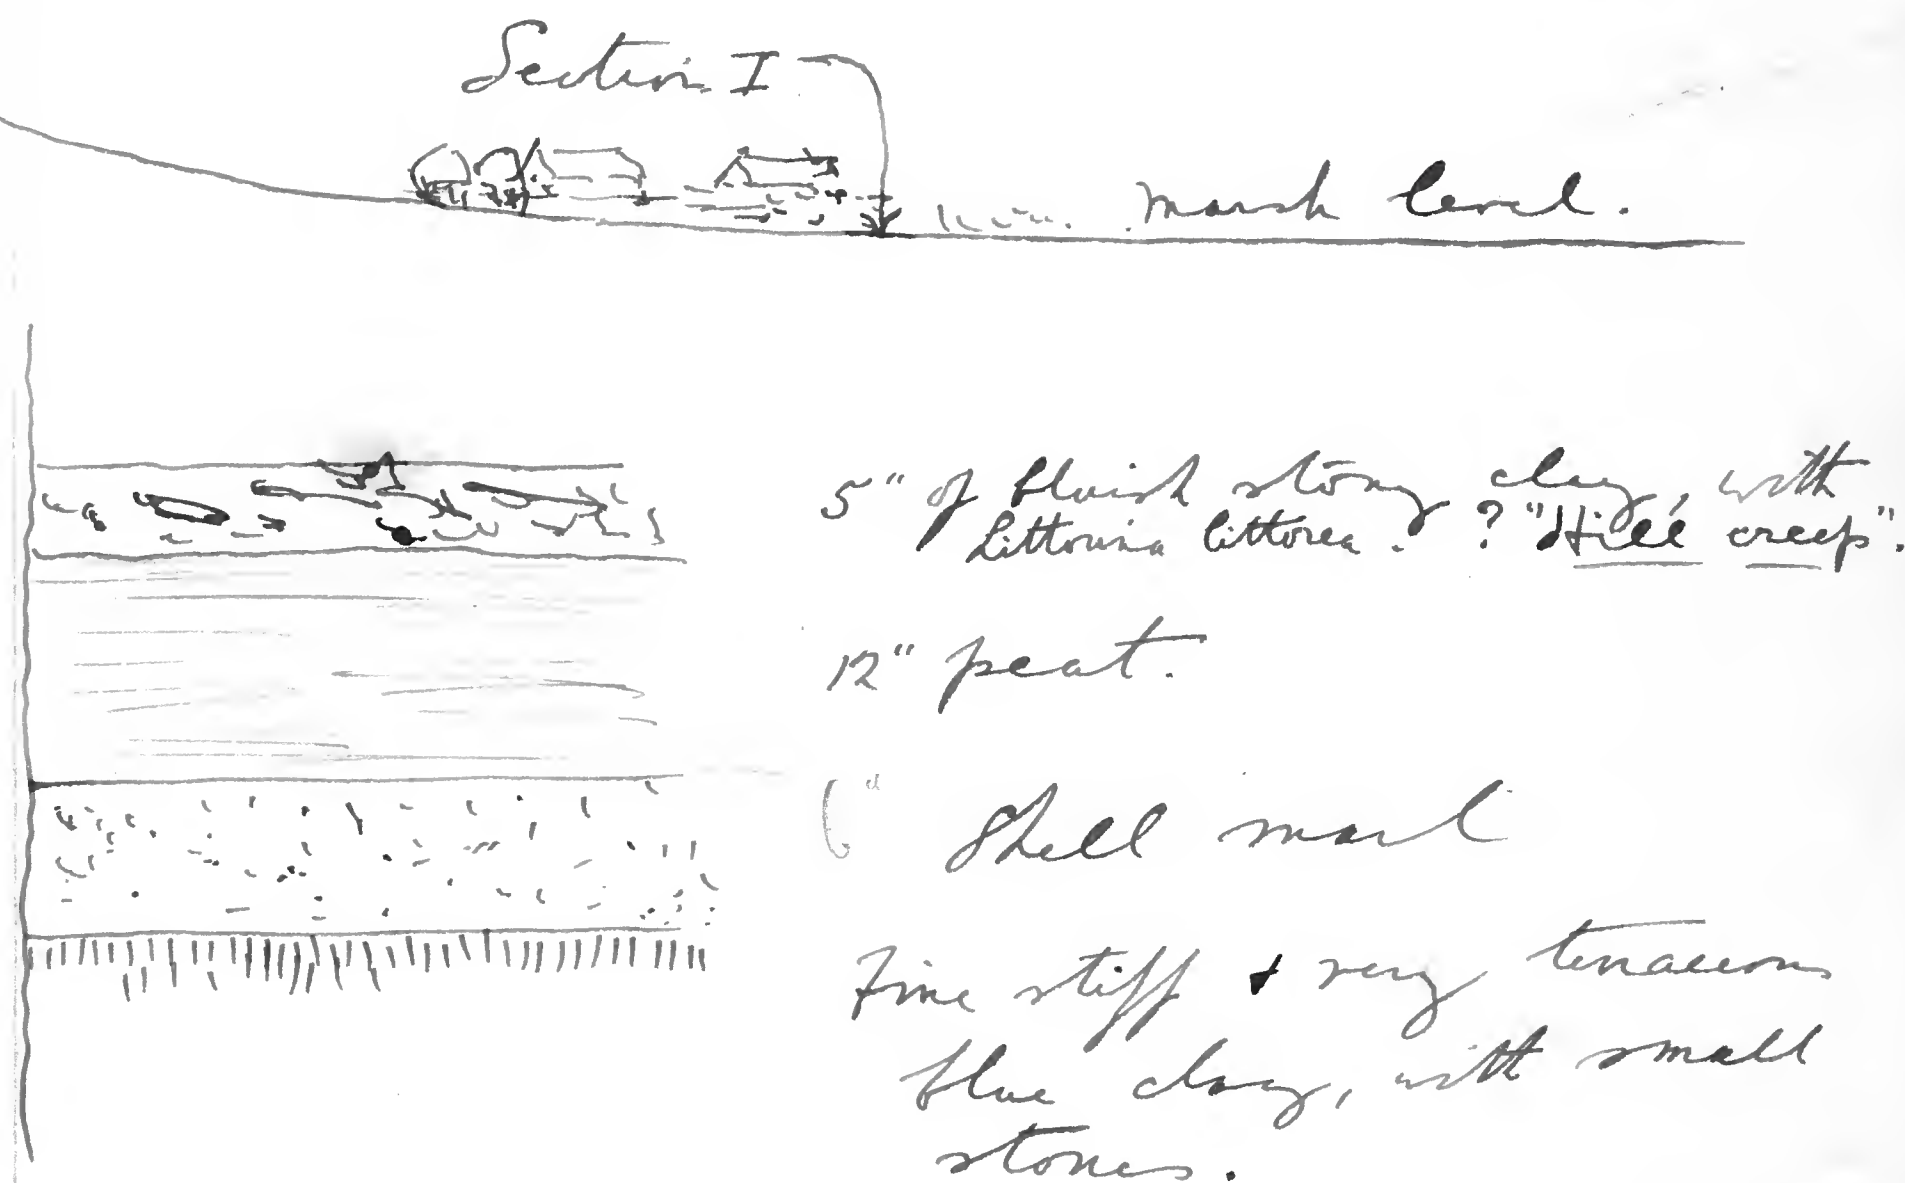 Section I
marsh level.
5" of bluish stony clay, with
Littorina littorea. ? "Hill creep".
12" peat.
6" Shell marl
Fine stiff + very tenaceous
blue clay, with small
stones.